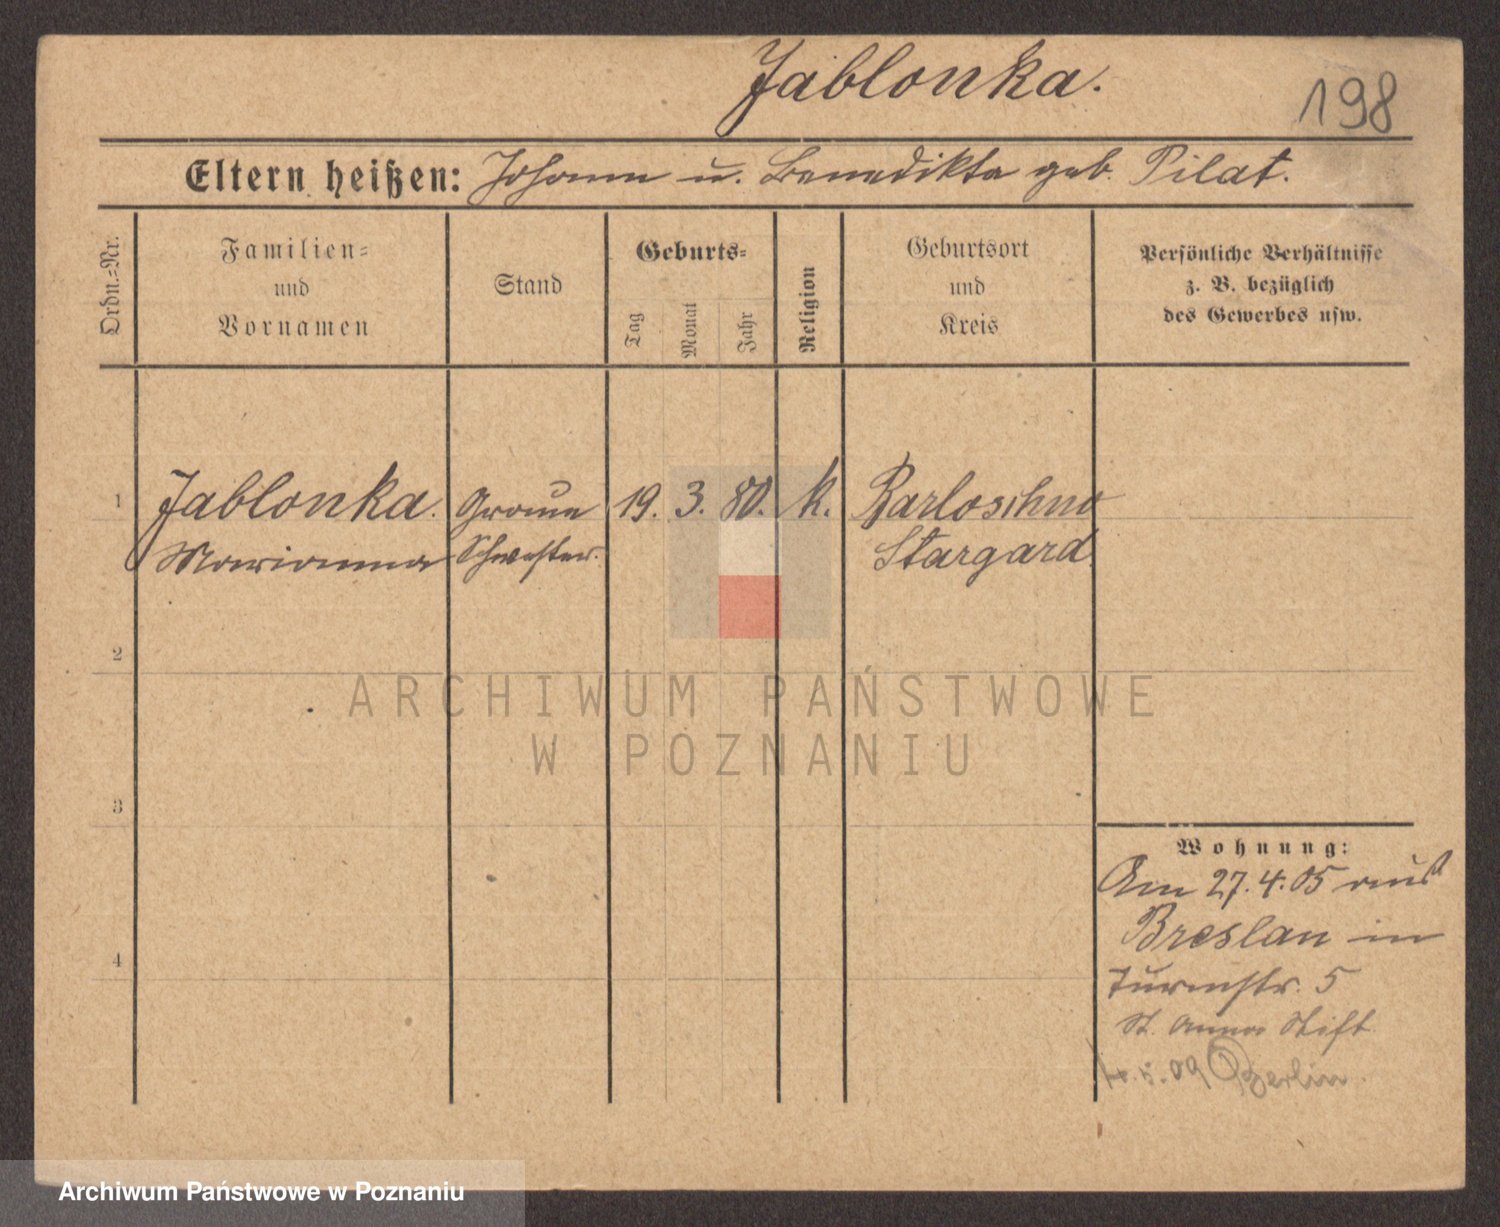 Jablonka.
198
Eltern heißen: Johann u. Benedikta geb. Pilat.
Ordn.=Nr.
Familien=
und
Vornamen
Stand
Geburts=
Tag
Monat
Jahr
Religion
Geburtsort
und
Kreis
Persönliche Verhältnisse
z. B. bezüglich
des Gewerbes usw.
1 Jablonka. Graue 19. 3. 80. k. Barloschno
Marianna Schwester. Stargard.
2
ARCHIWUM PAŃSTWOWE
W POZNANIU
3
Wohnung:
Am 27.4.05 aus
Breslau in
Turmstr. 5
St. Anna Stift
4
5.09 Berlin
Archiwum Państwowe w Poznaniu